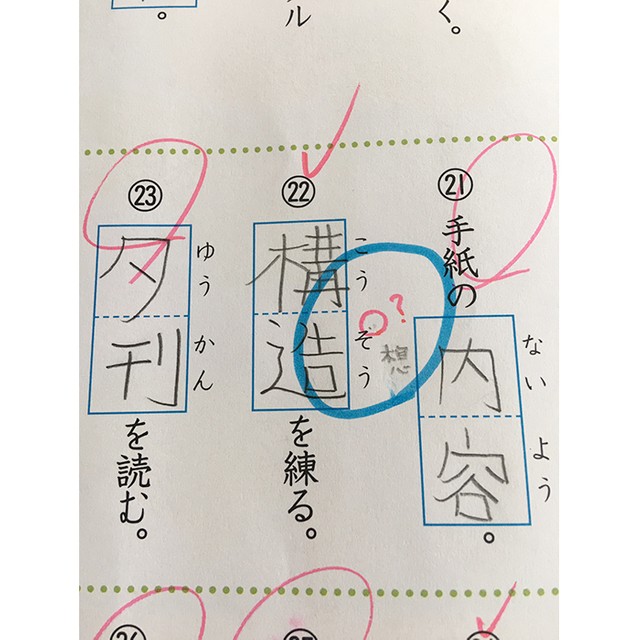 く。
ル
。
㉑手紙の内容。
ないよう
○?
想
㉒構造を練る。
こうぞう
㉓夕刊を読む。
ゆうかん